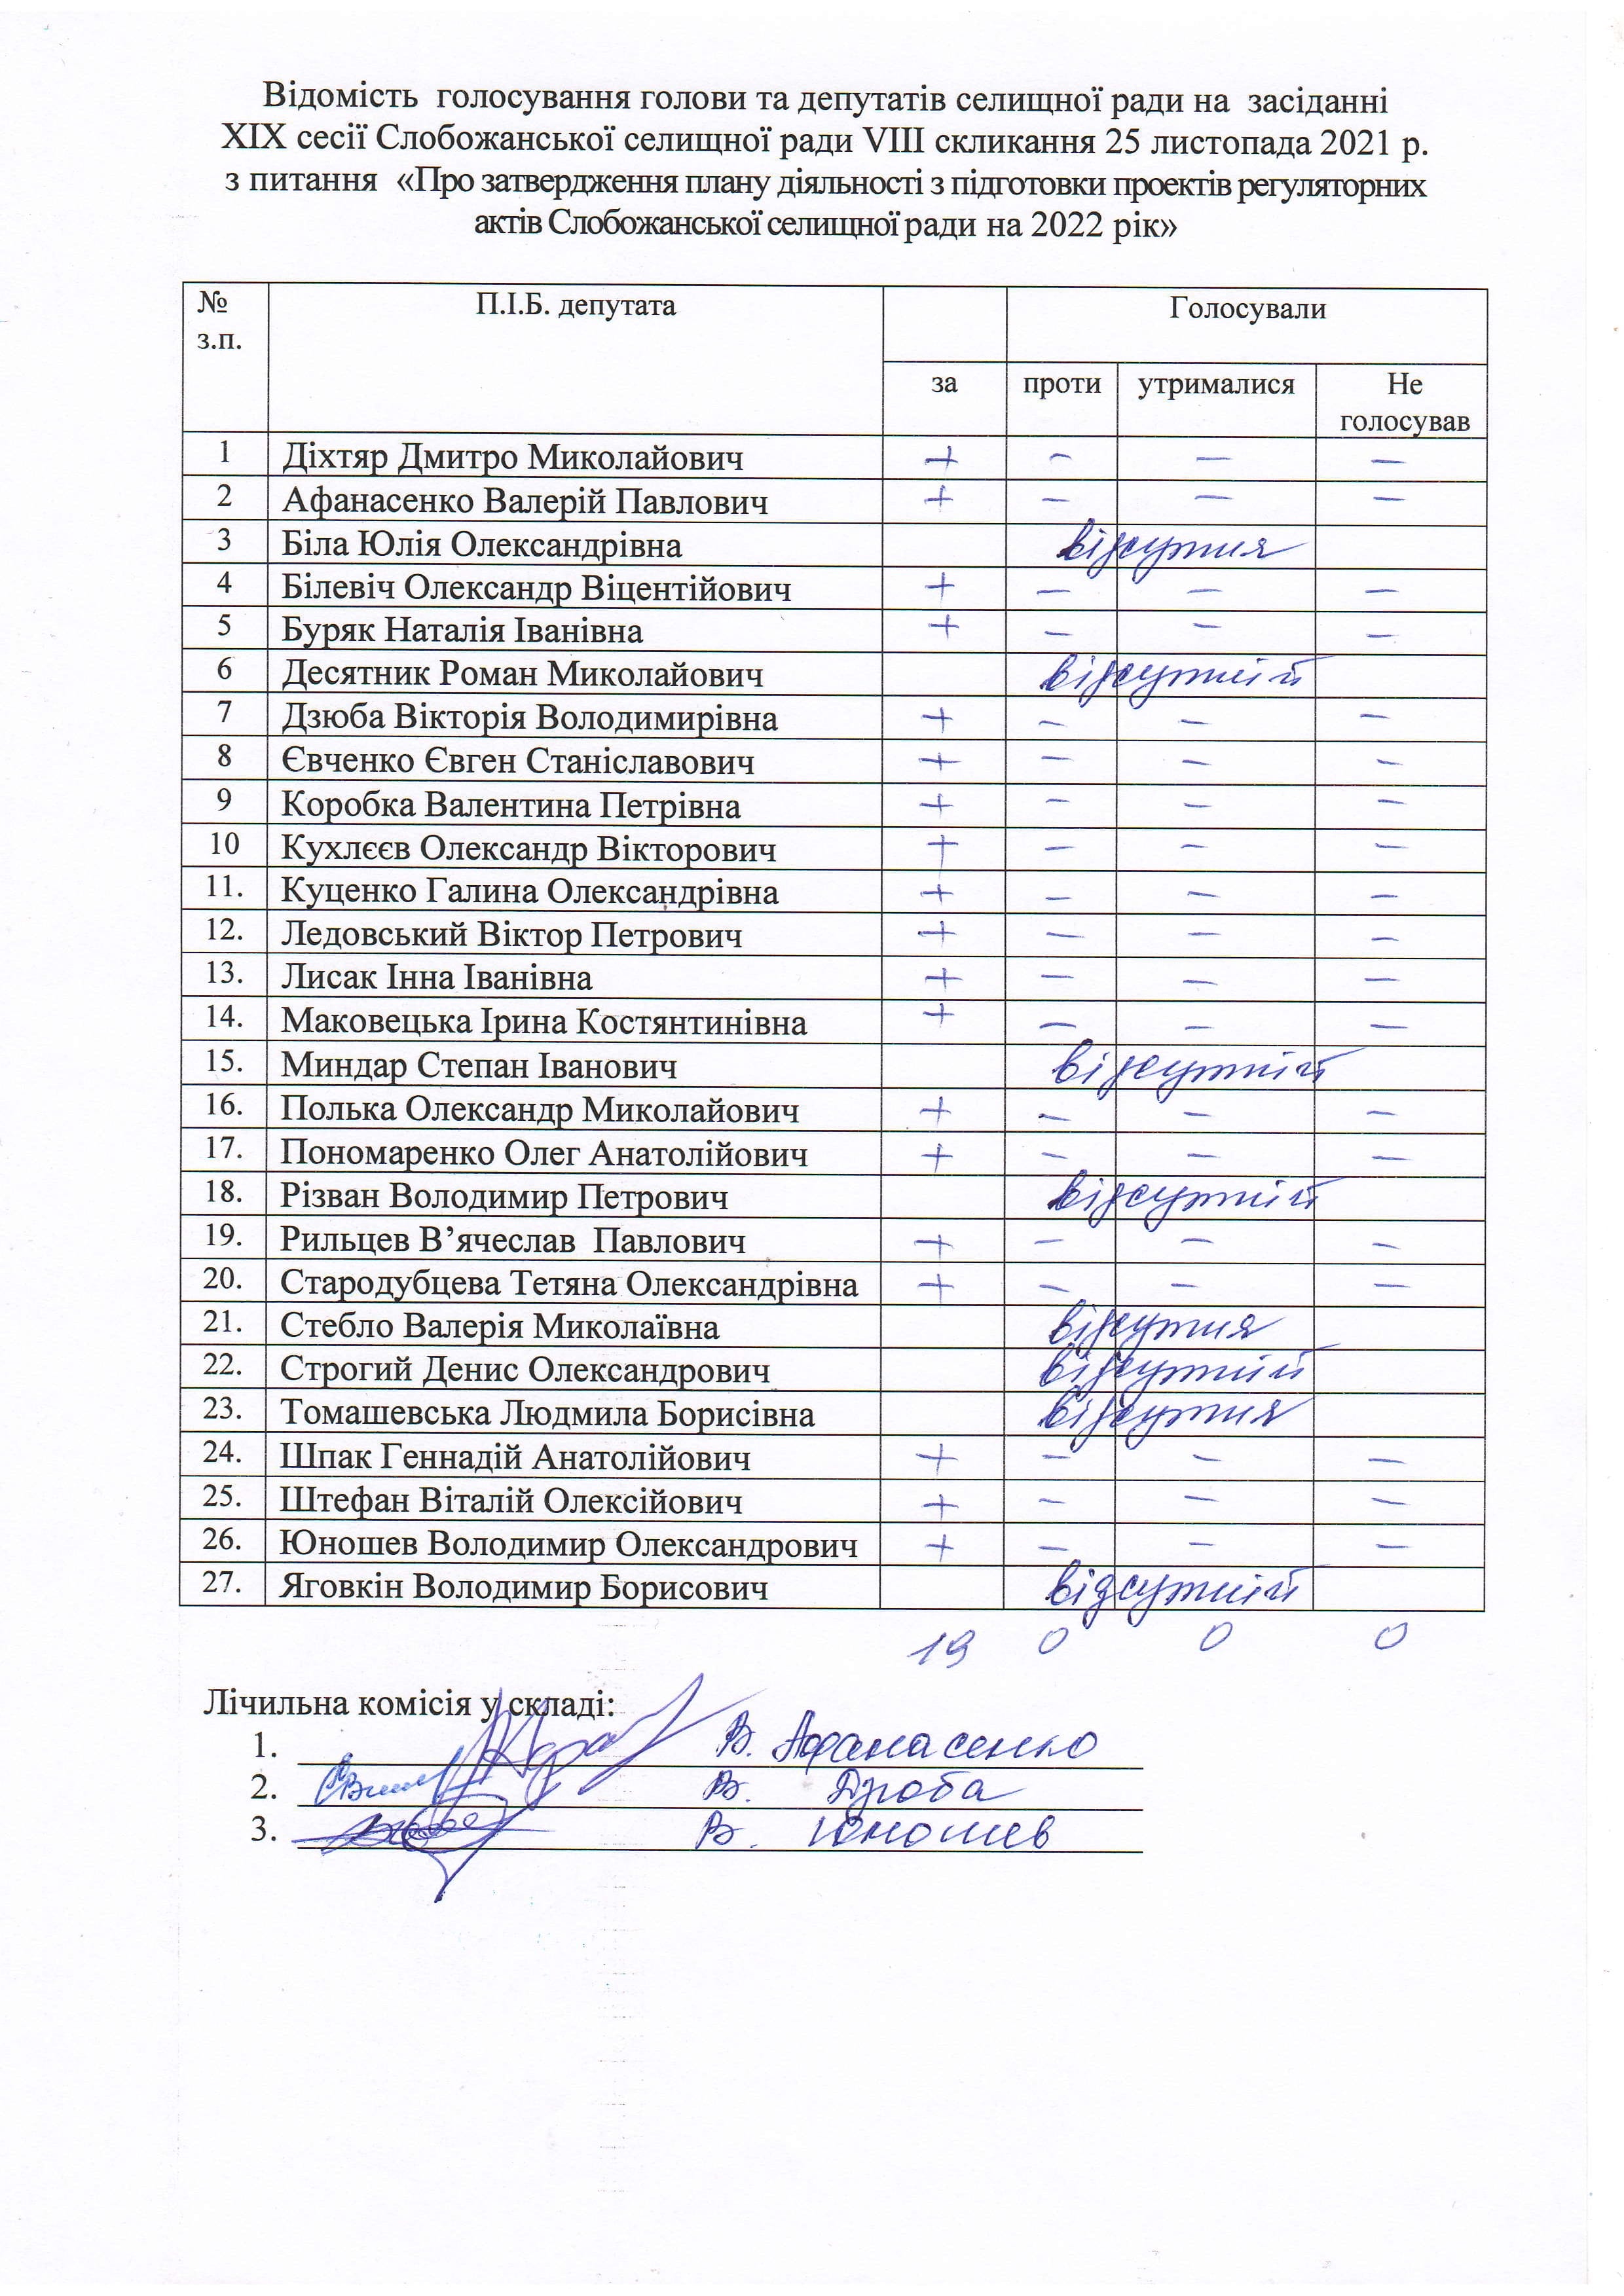 Відомість голосування голови та депутатів селищної ради на засіданні
XIX сесії Слобожанської селищної ради VIII скликання 25 листопада 2021 р.
з питання «Про затвердження плану діяльності з підготовки проектів регуляторних
актів Слобожанської селищної ради на 2022 рік»
№ П.І.Б. депутата Голосували
з.п.
за проти утрималися Не
голосував
1 Діхтяр Дмитро Миколайович + – – –
2 Афанасенко Валерій Павлович + – – –
3 Біла Юлія Олександрівна відсутня
4 Білевіч Олександр Віцентійович + – – –
5 Буряк Наталія Іванівна + – – –
6 Десятник Роман Миколайович відсутній
7 Дзюба Вікторія Володимирівна + – – –
8 Євченко Євген Станіславович + – – –
9 Коробка Валентина Петрівна + – – –
10 Кухлєєв Олександр Вікторович + – – –
11. Куценко Галина Олександрівна + – – –
12. Ледовський Віктор Петрович + – – –
13. Лисак Інна Іванівна + – – –
14. Маковецька Ірина Костянтинівна + – – –
15. Миндар Степан Іванович відсутній
16. Полька Олександр Миколайович + – – –
17. Пономаренко Олег Анатолійович + – – –
18. Різван Володимир Петрович відсутній
19. Рильцев В’ячеслав Павлович + – – –
20. Стародубцева Тетяна Олександрівна + – – –
21. Стебло Валерія Миколаївна відсутня
22. Строгий Денис Олександрович відсутній
23. Томашевська Людмила Борисівна відсутня
24. Шпак Геннадій Анатолійович + – – –
25. Штефан Віталій Олексійович + – – –
26. Юношев Володимир Олександрович + – – –
27. Яговкін Володимир Борисович відсутній
19 0 0 0
Лічильна комісія у складі:
1. В. Афанасенко
2. В. Дзюба
3. В. Юношев